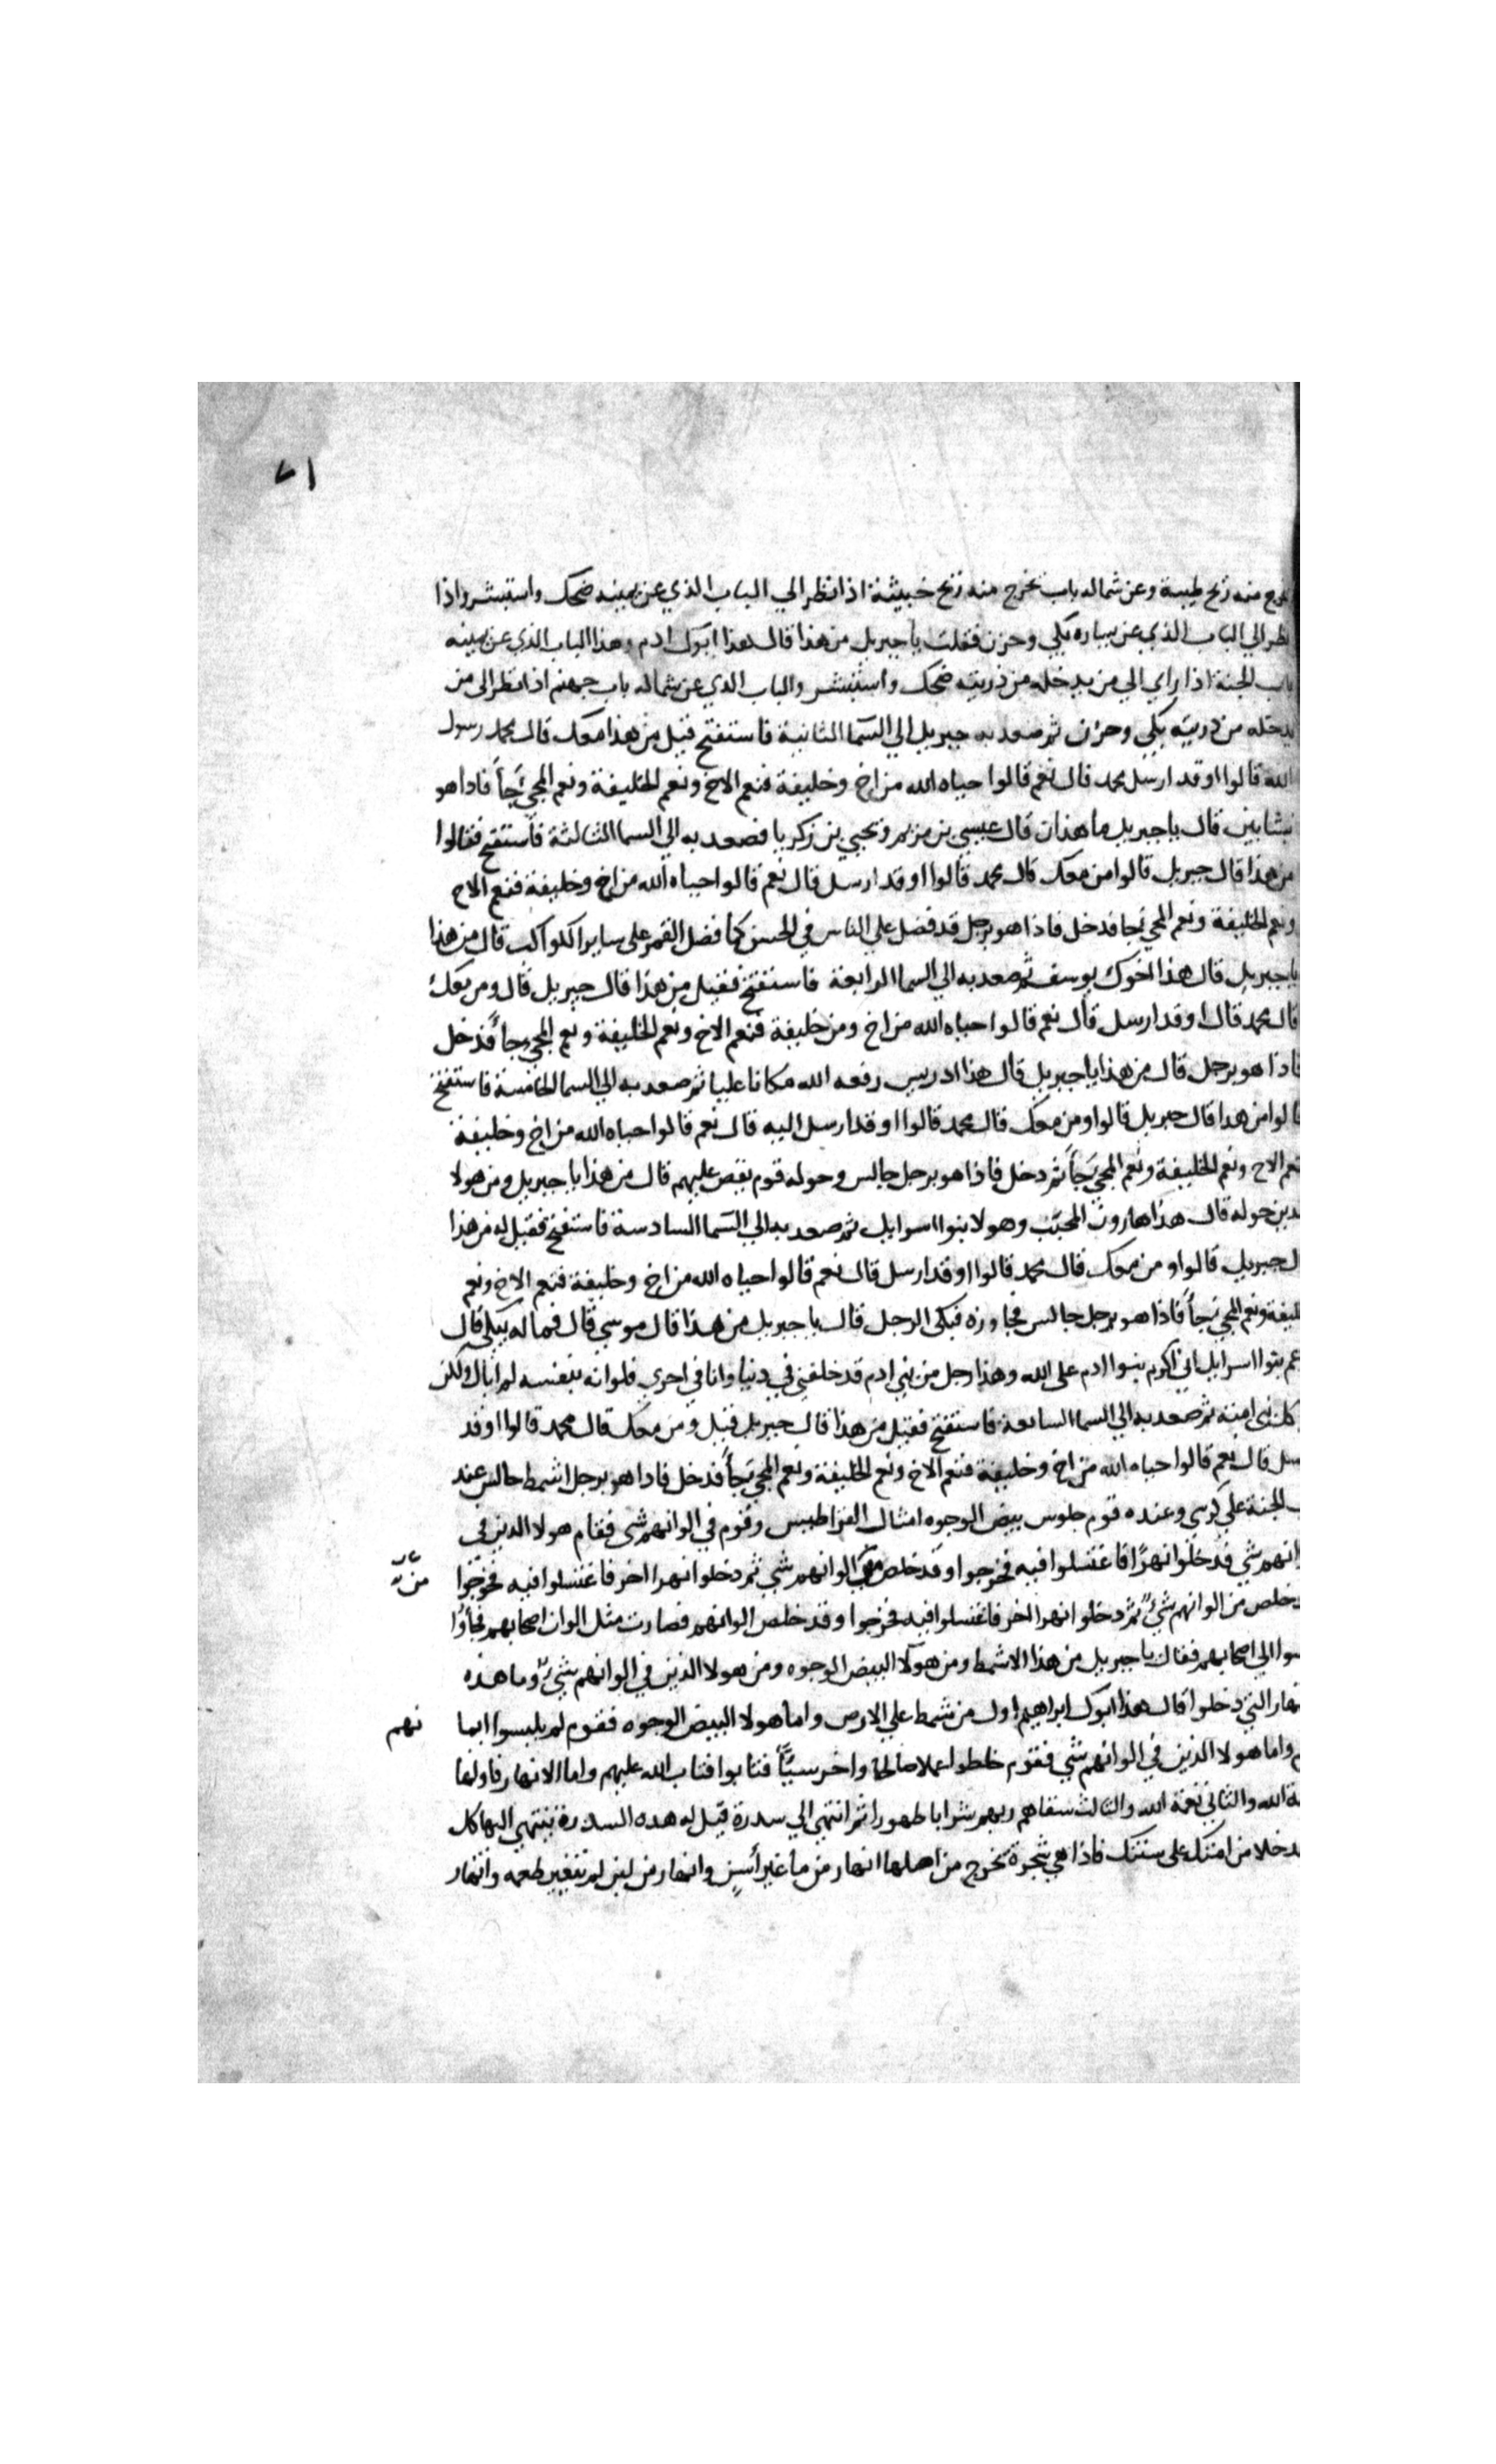 ٧١
منه ريح طيبة وعن شماله باب تخرج منه ريح خبيثة اذا نظر الي الباب الذي عن يمينه ضحك واستبشر واذا
نظر الي الباب الذي عن يساره بكي وحزن فقلت يا جبريل من هذا قال هذا ابوك ادم وهذا الباب الذي عن يمينه
باب الجنة اذا راي الي من يدخله من ذريته ضحك واستبشر والباب الذي عن شماله باب جهنم اذا نظر الي من
يدخله من ذريته بكي وحزن ثم صعد به جبريل الي السما الثانية فاستفتح قيل من هذا معك قال محمد رسول
الله قالوا اوقد ارسل محمد قال نعم قالوا حياه الله من اخ وخليفة فنعم الاخ ونعم الخليفة ونعم المجي جأ فاذا هو
بشابين قال يا جبريل ما هذان قال عيسي بن مريم ويحيي بن زكريا فصعد به الي السما الثالثة فاستفتح فقالوا
من هذا قال جبريل قالوا من معك قال محمد قالوا اوقد ارسل قال نعم قالوا حياه الله من اخ وخليفة فنعم الاخ
ونعم الخليفة ونعم المجي جا فدخل فاذا هو برجل قد فضل علي الناس في الحسن كما فضل القمر علي ساير الكواكب قال من هذا
يا جبريل قال هذا اخوك يوسف ثم صعد به الي السما الرابعة فاستفتح فقيل من هذا قال جبريل قال ومن معك
قال محمد قال اوقد ارسل قال نعم قالوا حياه الله من اخ ومن خليفة فنعم الاخ ونعم الخليفة ونعم المجي جأ فدخل
فاذا هو برجل قال من هذا يا جبريل قال هذا ادريس رفعه الله مكانا عليا ثم صعد به الي السما الخامسة فاستفتح
قالوا من هذا قال جبريل قالوا ومن معك قال محمد قالوا اوقد ارسل اليه قال نعم قالوا حياه الله من اخ وخليفة
فنعم الاخ ونعم الخليفة ونعم المجي جأ ثم دخل فاذا هو برجل جالس وحوله قوم يقص عليهم قال من هذا يا جبريل ومن هولا
الذين حوله قال هذا هارون المحبب وهولا بنوا اسرايل ثم صعد به الي السما السادسة فاستفتح فقيل له من هذا
قال جبريل قالوا ومن معك قال محمد قالوا اوقد ارسل قال نعم قالوا حياه الله من اخ وخليفة فنعم الاخ ونعم
الخليفة ونعم المجي جأ فاذا هو برجل جالس فجاوزه فبكي الرجل قال يا جبريل من هذا قال موسي قال فماله يبكي قال
زعم بنوا اسرايل اني اكرم بنوا ادم علي الله وهذا رجل من بني ادم قد خلفني في دنيا وانا في اخري فلو انه بنفسه لم ابال ولكن
كل نبي امته ثم صعد به الي السما السابعة فاستفتح فقيل من هذا قال جبريل قيل ومن معك قال محمد قالوا اوقد
ارسل قال نعم قالوا حياه الله من اخ وخليفة فنعم الاخ ونعم الخليفة ونعم المجي جأ فدخل فاذا هو برجل اشمط جالس عند
باب الجنة علي كرسي وعنده قوم جلوس بيض الوجوه امثال القراطيس وقوم في الوانهم شي فقام هولا الذين في
الوانهم شي فدخلوا نهرًا فاغتسلوا فيه فخرجوا وقد خلص من الوانهم شي ثم دخلوا نهرا اخر فاغتسلوا فيه فخرجوا
وقد خلص من الوانهم شيٌ ثم دخلوا نهرا اخر فاغتسلوا فيه فخرجوا وقد خلص الوانهم فصارت مثل الوان اصحابهم فجاؤا
فجلسوا الي اصحابهم فقال يا جبريل من هذا الاشمط ومن هولا البيض الوجوه ومن هولا الذين في الوانهم شيٌ وما هذه
الانهار التي دخلوا قال هذا ابوك ابراهيم اول من شمط علي الارض واما هولا البيض الوجوه فقوم لم يلبسوا ايما
نهم
واما هولا الذين في الوانهم شي فقوم خلطوا عملا صالحا واخر سيّأ فتابوا فتاب الله عليهم واما الانهار فاولها
رحمة الله والثاني نعمة الله والثالث سقاهم ربهم شرابا طهورا ثم انتهي الي سدرة قيل له هذه السدرة ينتهي اليها كل
احد خلا من امتك علي سنتك فاذا هي شجرة يخرج من اصلها انهار من ما غير أسن وانهار من لبن لم يتغير طعمه وانهار